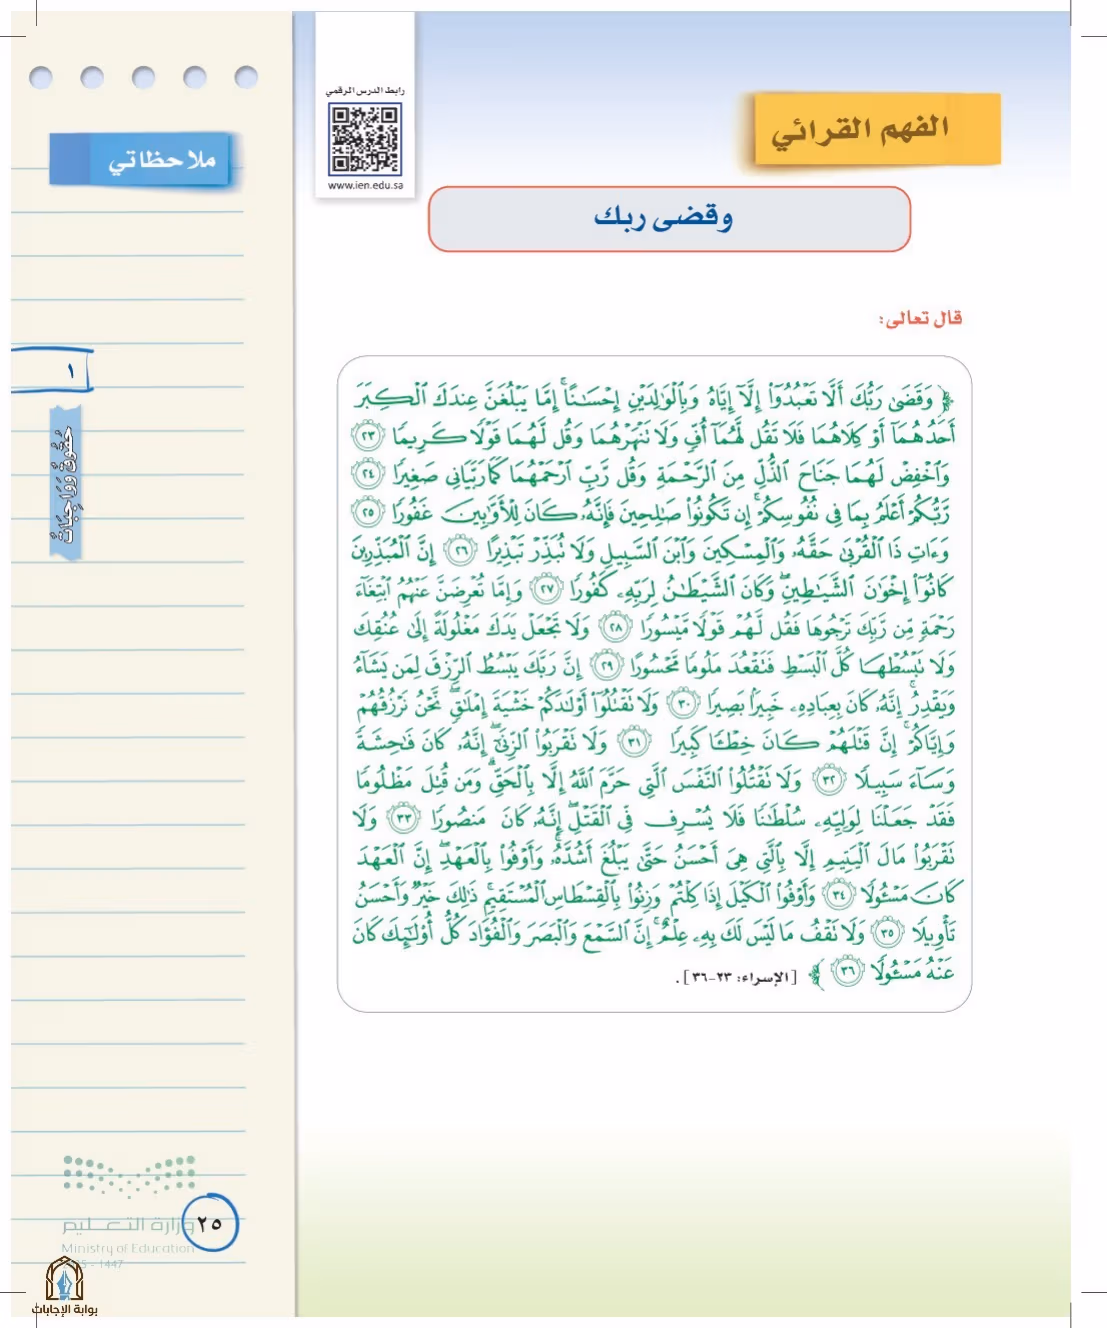 رابط الدرس الرقمي
www.ien.edu.sa
الفهم القرائي
ملاحظاتي
وقضى ربك
قال تعالى:
﴿ وَقَضَىٰ رَبُّكَ أَلَّا تَعْبُدُوٓا۟ إِلَّآ إِيَّاهُ وَبِٱلْوَٰلِدَيْنِ إِحْسَـٰنًا ۚ إِمَّا يَبْلُغَنَّ عِندَكَ ٱلْكِبَرَ
أَحَدُهُمَآ أَوْ كِلَاهُمَا فَلَا تَقُل لَّهُمَآ أُفٍّ وَلَا تَنْهَرْهُمَا وَقُل لَّهُمَا قَوْلًا كَرِيمًا ٢٣
وَٱخْفِضْ لَهُمَا جَنَاحَ ٱلذُّلِّ مِنَ ٱلرَّحْمَةِ وَقُل رَّبِّ ٱرْحَمْهُمَا كَمَا رَبَّيَانِى صَغِيرًا ٢٤
رَّبُّكُمْ أَعْلَمُ بِمَا فِى نُفُوسِكُمْ ۚ إِن تَكُونُوا۟ صَـٰلِحِينَ فَإِنَّهُۥ كَانَ لِلْأَوَّٰبِينَ غَفُورًا ٢٥
وَءَاتِ ذَا ٱلْقُرْبَىٰ حَقَّهُۥ وَٱلْمِسْكِينَ وَٱبْنَ ٱلسَّبِيلِ وَلَا تُبَذِّرْ تَبْذِيرًا ٢٦ إِنَّ ٱلْمُبَذِّرِينَ
كَانُوٓا۟ إِخْوَٰنَ ٱلشَّيَـٰطِينِ ۖ وَكَانَ ٱلشَّيْطَـٰنُ لِرَبِّهِۦ كَفُورًا ٢٧ وَإِمَّا تُعْرِضَنَّ عَنْهُمُ ٱبْتِغَآءَ
رَحْمَةٍ مِّن رَّبِّكَ تَرْجُوهَا فَقُل لَّهُمْ قَوْلًا مَّيْسُورًا ٢٨ وَلَا تَجْعَلْ يَدَكَ مَغْلُولَةً إِلَىٰ عُنُقِكَ
وَلَا تَبْسُطْهَا كُلَّ ٱلْبَسْطِ فَتَقْعُدَ مَلُومًا مَّحْسُورًا ٢٩ إِنَّ رَبَّكَ يَبْسُطُ ٱلرِّزْقَ لِمَن يَشَآءُ
وَيَقْدِرُ ۚ إِنَّهُۥ كَانَ بِعِبَادِهِۦ خَبِيرًۢا بَصِيرًا ٣٠ وَلَا تَقْتُلُوٓا۟ أَوْلَـٰدَكُمْ خَشْيَةَ إِمْلَـٰقٍ ۖ نَّحْنُ نَرْزُقُهُمْ
وَإِيَّاكُمْ ۚ إِنَّ قَتْلَهُمْ كَانَ خِطْـًٔا كَبِيرًا ٣١ وَلَا تَقْرَبُوا۟ ٱلزِّنَىٰٓ ۖ إِنَّهُۥ كَانَ فَـٰحِشَةً
وَسَآءَ سَبِيلًا ٣٢ وَلَا تَقْتُلُوا۟ ٱلنَّفْسَ ٱلَّتِى حَرَّمَ ٱللَّهُ إِلَّا بِٱلْحَقِّ ۗ وَمَن قُتِلَ مَظْلُومًا
فَقَدْ جَعَلْنَا لِوَلِيِّهِۦ سُلْطَـٰنًا فَلَا يُسْرِف فِّى ٱلْقَتْلِ ۖ إِنَّهُۥ كَانَ مَنصُورًا ٣٣ وَلَا
تَقْرَبُوا۟ مَالَ ٱلْيَتِيمِ إِلَّا بِٱلَّتِى هِىَ أَحْسَنُ حَتَّىٰ يَبْلُغَ أَشُدَّهُۥ ۚ وَأَوْفُوا۟ بِٱلْعَهْدِ ۖ إِنَّ ٱلْعَهْدَ
كَانَ مَسْـُٔولًا ٣٤ وَأَوْفُوا۟ ٱلْكَيْلَ إِذَا كِلْتُمْ وَزِنُوا۟ بِٱلْقِسْطَاسِ ٱلْمُسْتَقِيمِ ۚ ذَٰلِكَ خَيْرٌ وَأَحْسَنُ
تَأْوِيلًا ٣٥ وَلَا تَقْفُ مَا لَيْسَ لَكَ بِهِۦ عِلْمٌ ۚ إِنَّ ٱلسَّمْعَ وَٱلْبَصَرَ وَٱلْفُؤَادَ كُلُّ أُو۟لَـٰٓئِكَ كَانَ
عَنْهُ مَسْـُٔولًا ٣٦ ﴾ [الإسراء: ٢٣-٣٦].
١
حُقُوقٌ وَوَاجِبَاتٌ
وزارة التعليم
٢٥
Ministry of Education
2025 - 1447
بوابة الإجابات